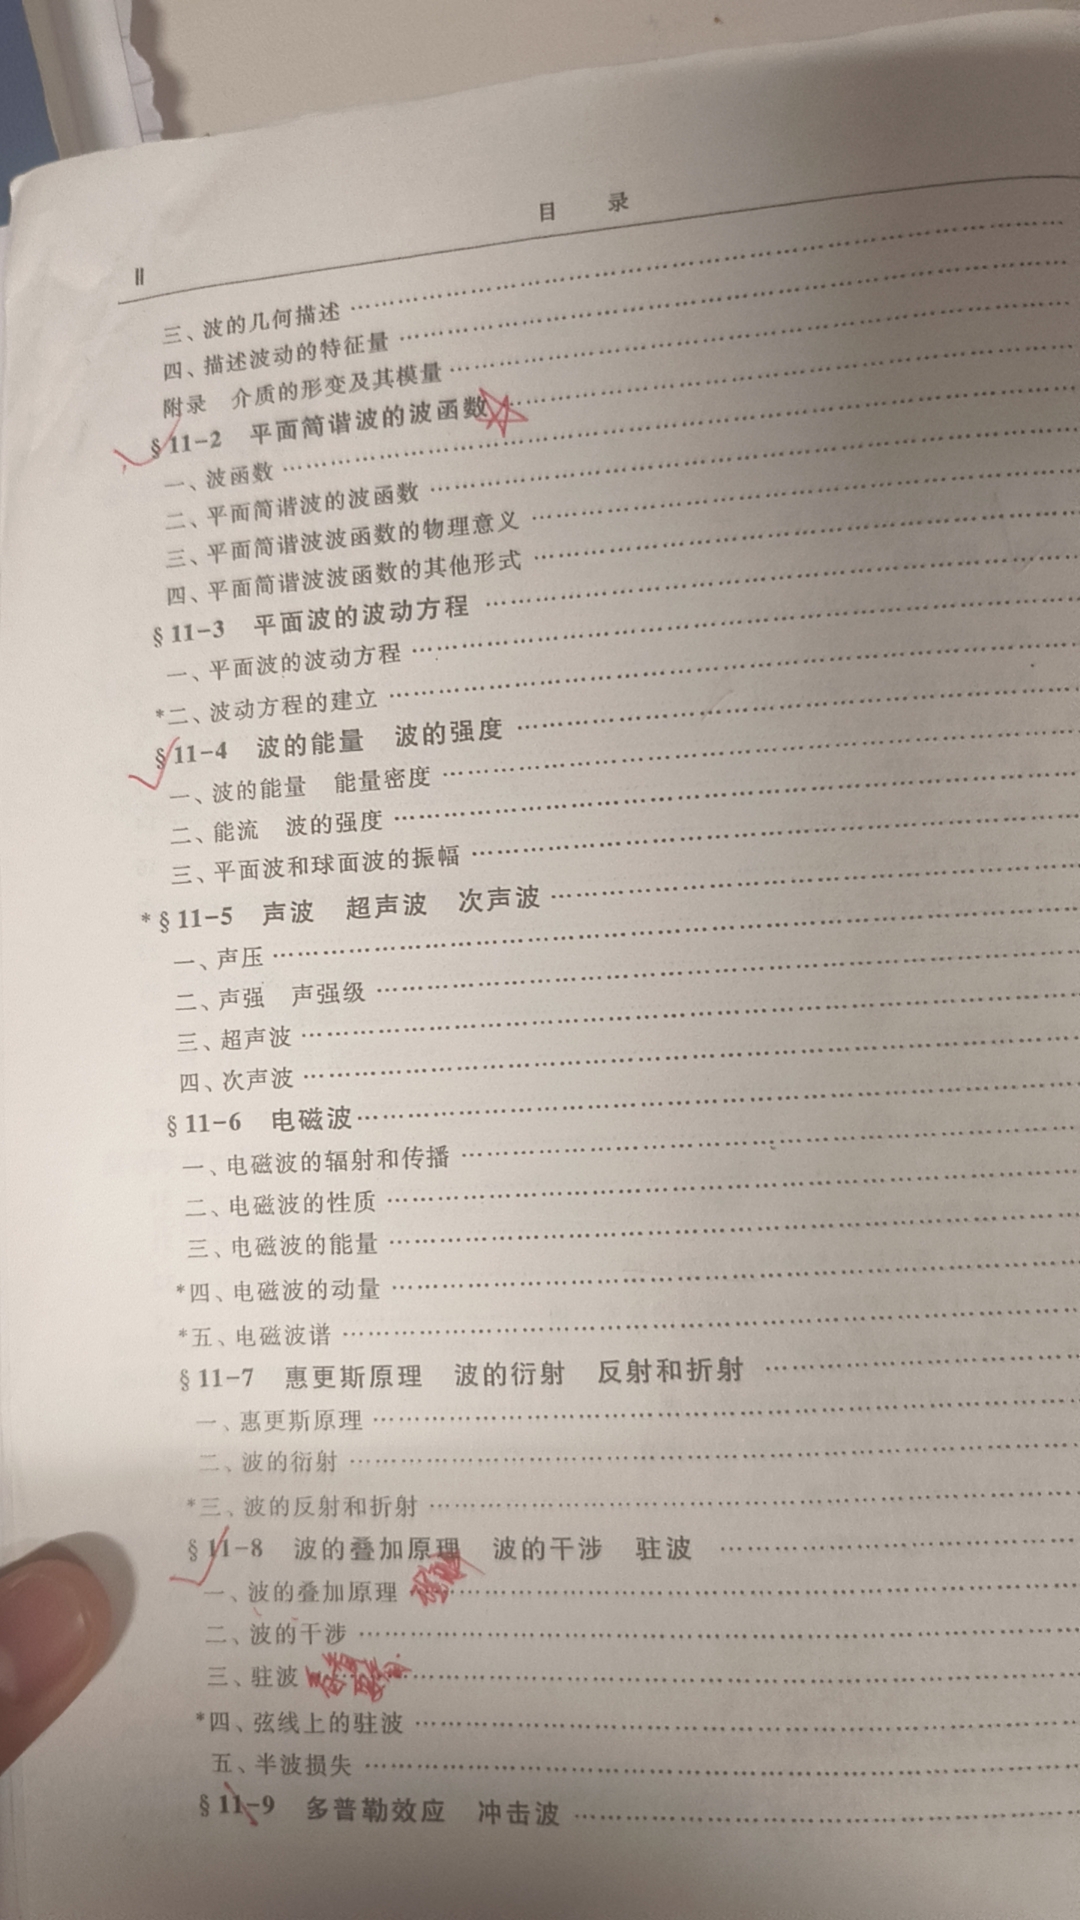 目 录
II
三、波的几何描述
四、描述波动的特征量
附录 介质的形变及其模量
§11-2 平面简谐波的波函数
一、波函数
二、平面简谐波的波函数
三、平面简谐波波函数的物理意义
四、平面简谐波波函数的其他形式
§11-3 平面波的波动方程
一、平面波的波动方程
*二、波动方程的建立
§11-4 波的能量 波的强度
一、波的能量 能量密度
二、能流 波的强度
三、平面波和球面波的振幅
*§11-5 声波 超声波 次声波
一、声压
二、声强 声强级
三、超声波
四、次声波
§11-6 电磁波
一、电磁波的辐射和传播
二、电磁波的性质
三、电磁波的能量
*四、电磁波的动量
*五、电磁波谱
§11-7 惠更斯原理 波的衍射 反射和折射
一、惠更斯原理
二、波的衍射
*三、波的反射和折射
§11-8 波的叠加原理 波的干涉 驻波
一、波的叠加原理
二、波的干涉
三、驻波
*四、弦线上的驻波
五、半波损失
§11-9 多普勒效应 冲击波